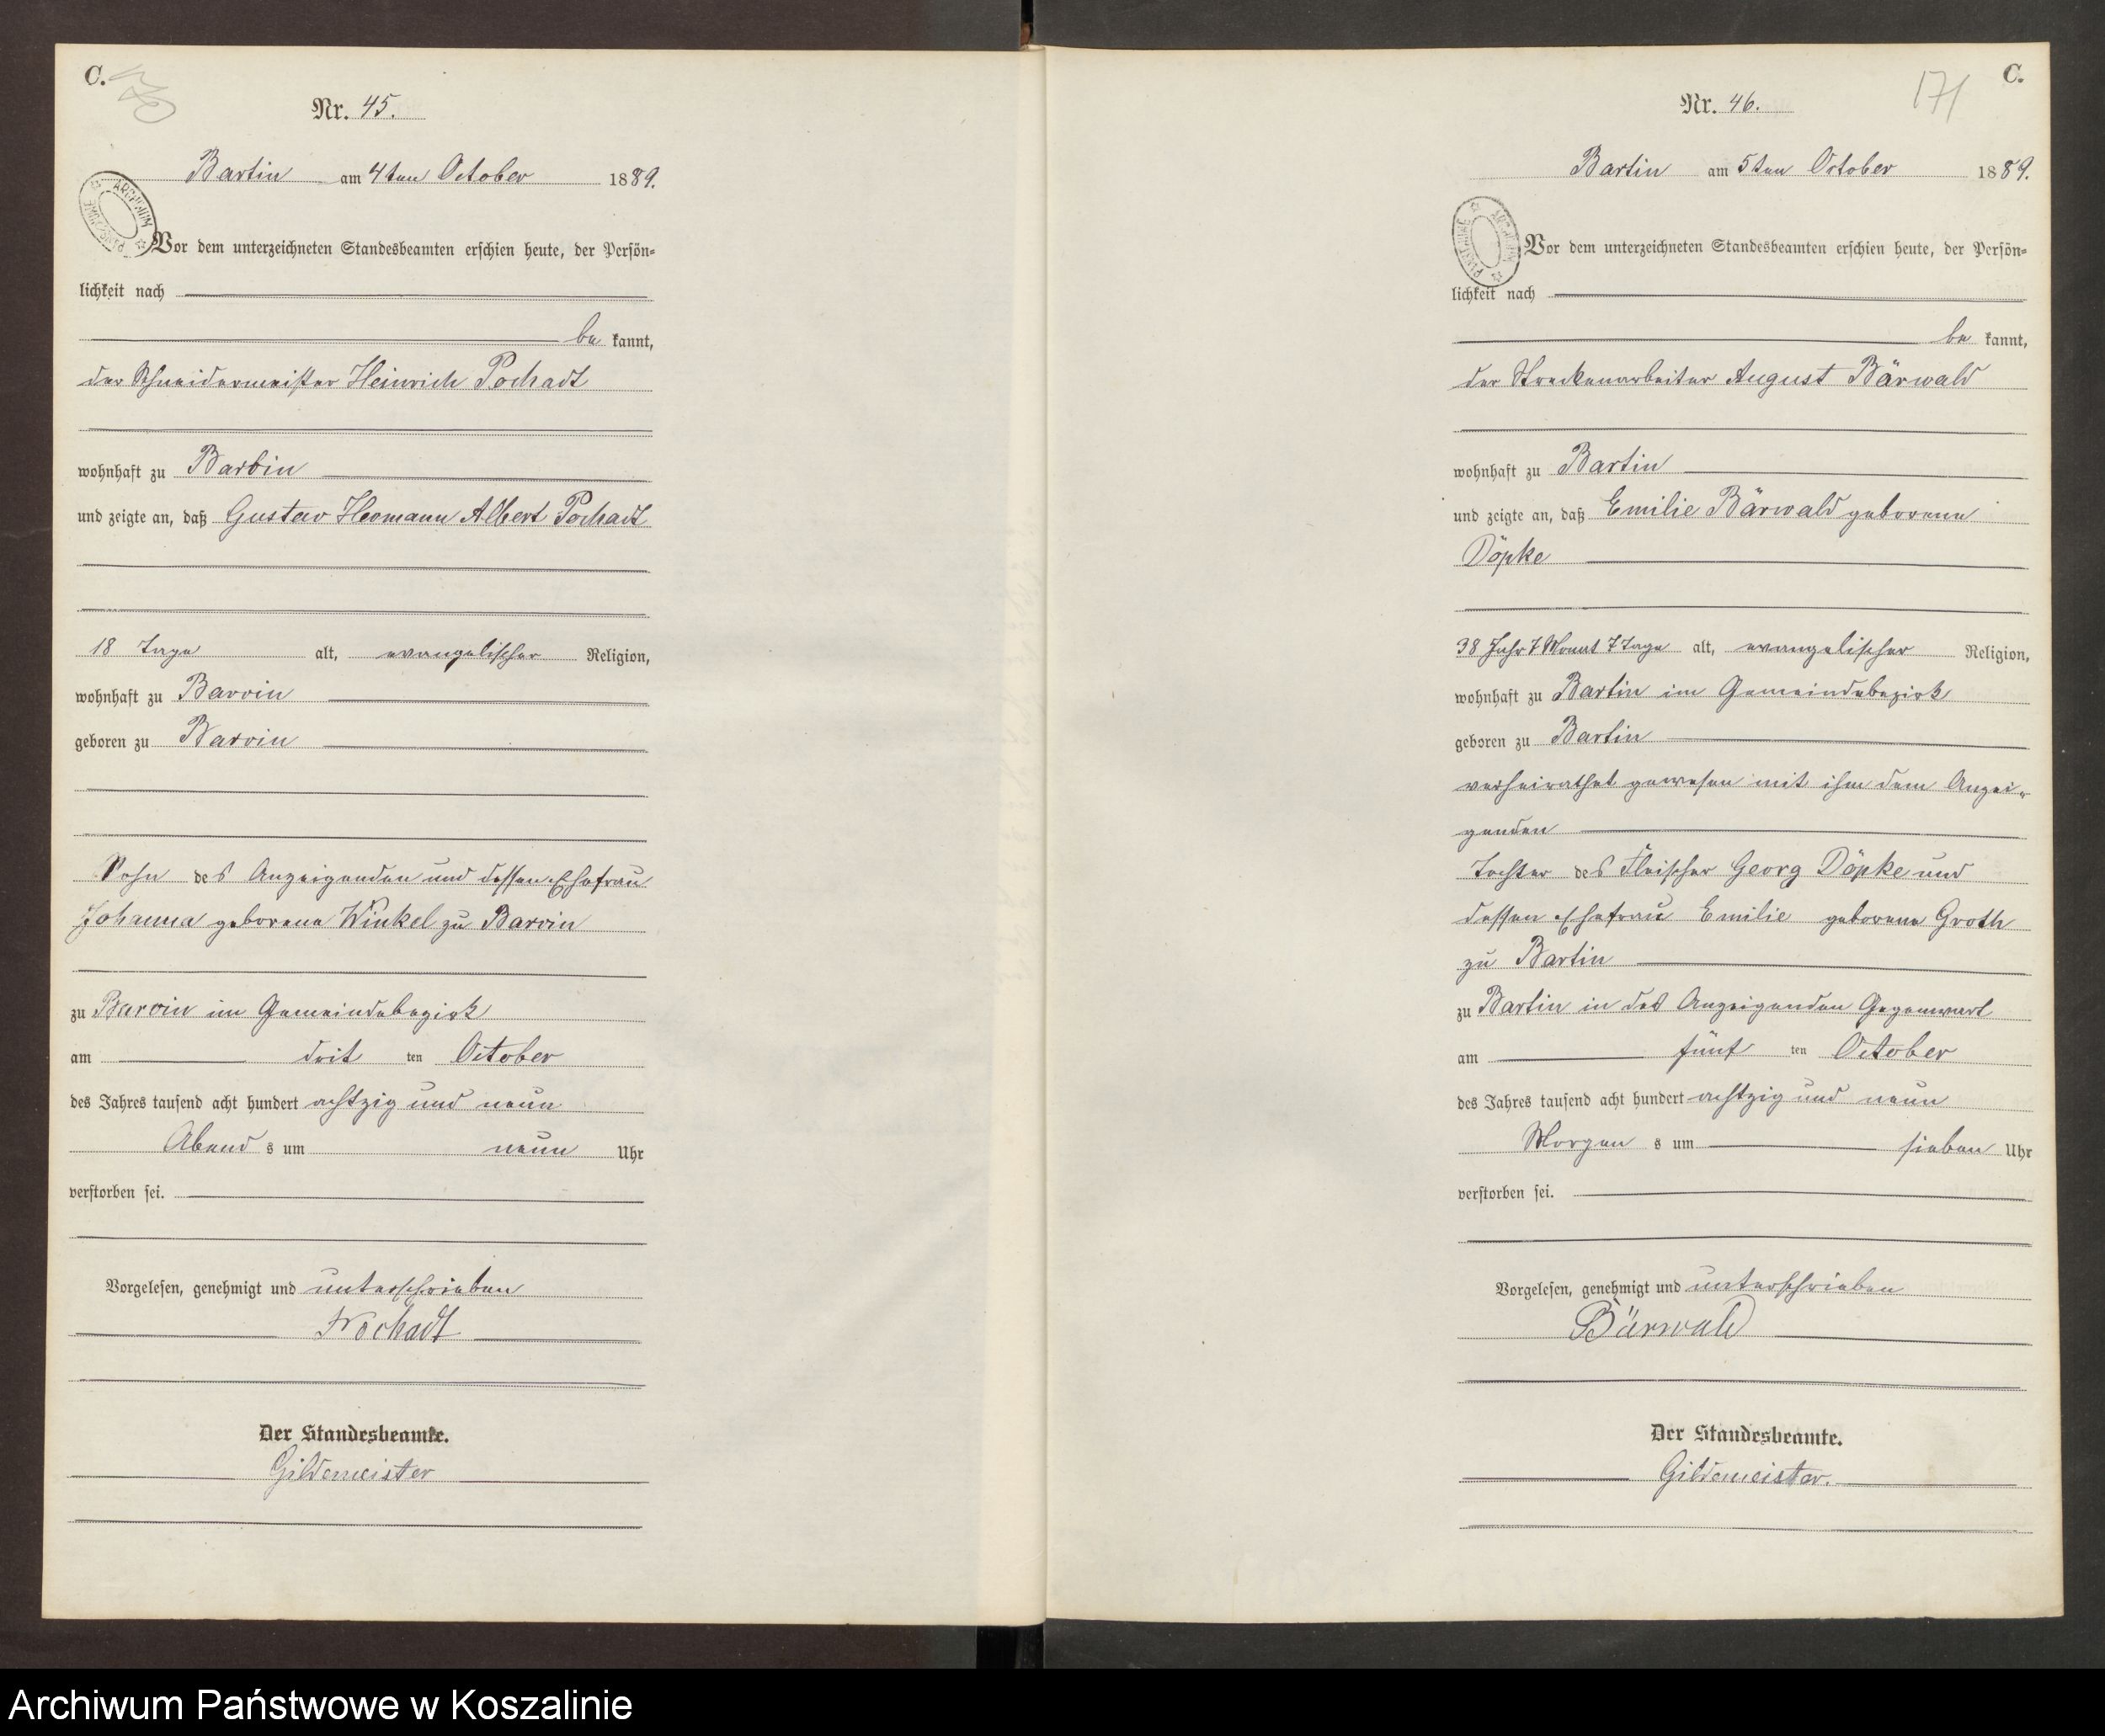 C.
Nr. 45.
Bartin am 4ten October 1889.
ARCHIWUM PAŃSTWOWE
Vor dem unterzeichneten Standesbeamten erschien heute, der Persön-
lichkeit nach
be kannt,
der Schneidermeister Heinrich Pochadt
wohnhaft zu Barvin
und zeigte an, daß Gustav Hermann Albert Pochadt
18 Tage alt, evangelischer Religion,
wohnhaft zu Barvin
geboren zu Barvin
Sohn des Anzeigenden und dessen Ehefrau
Johanna geborene Winkel zu Barvin
zu Barvin im Gemeindebezirk
am drit ten October
des Jahres tausend acht hundert achtzig und neun
Abend s um neun Uhr
verstorben sei.
Vorgelesen, genehmigt und unterschrieben
Pochadt
Der Standesbeamte.
Gildemeister
C.
171
Nr. 46.
Bartin am 5ten October 1889.
ARCHIWUM PAŃSTWOWE
Vor dem unterzeichneten Standesbeamten erschien heute, der Persön-
lichkeit nach
be kannt,
der Streckenarbeiter August Bärwald
wohnhaft zu Bartin
und zeigte an, daß Emilie Bärwald geborene
Döpke
38 Jahr 7 Monat 7 Tage alt, evangelischer Religion,
wohnhaft zu Bartin im Gemeindebezirk
geboren zu Bartin
verheirathet gewesen mit ihm dem Anzei-
genden
Tochter des Fleischer Georg Döpke und
dessen Ehefrau Emilie geborene Groth
zu Bartin
zu Bartin in des Anzeigenden Gegenwart
am fünf ten October
des Jahres tausend acht hundert achtzig und neun
Morgen s um sieben Uhr
verstorben sei.
Vorgelesen, genehmigt und unterschrieben
Bärwald
Der Standesbeamte.
Gildemeister.
Archiwum Państwowe w Koszalinie